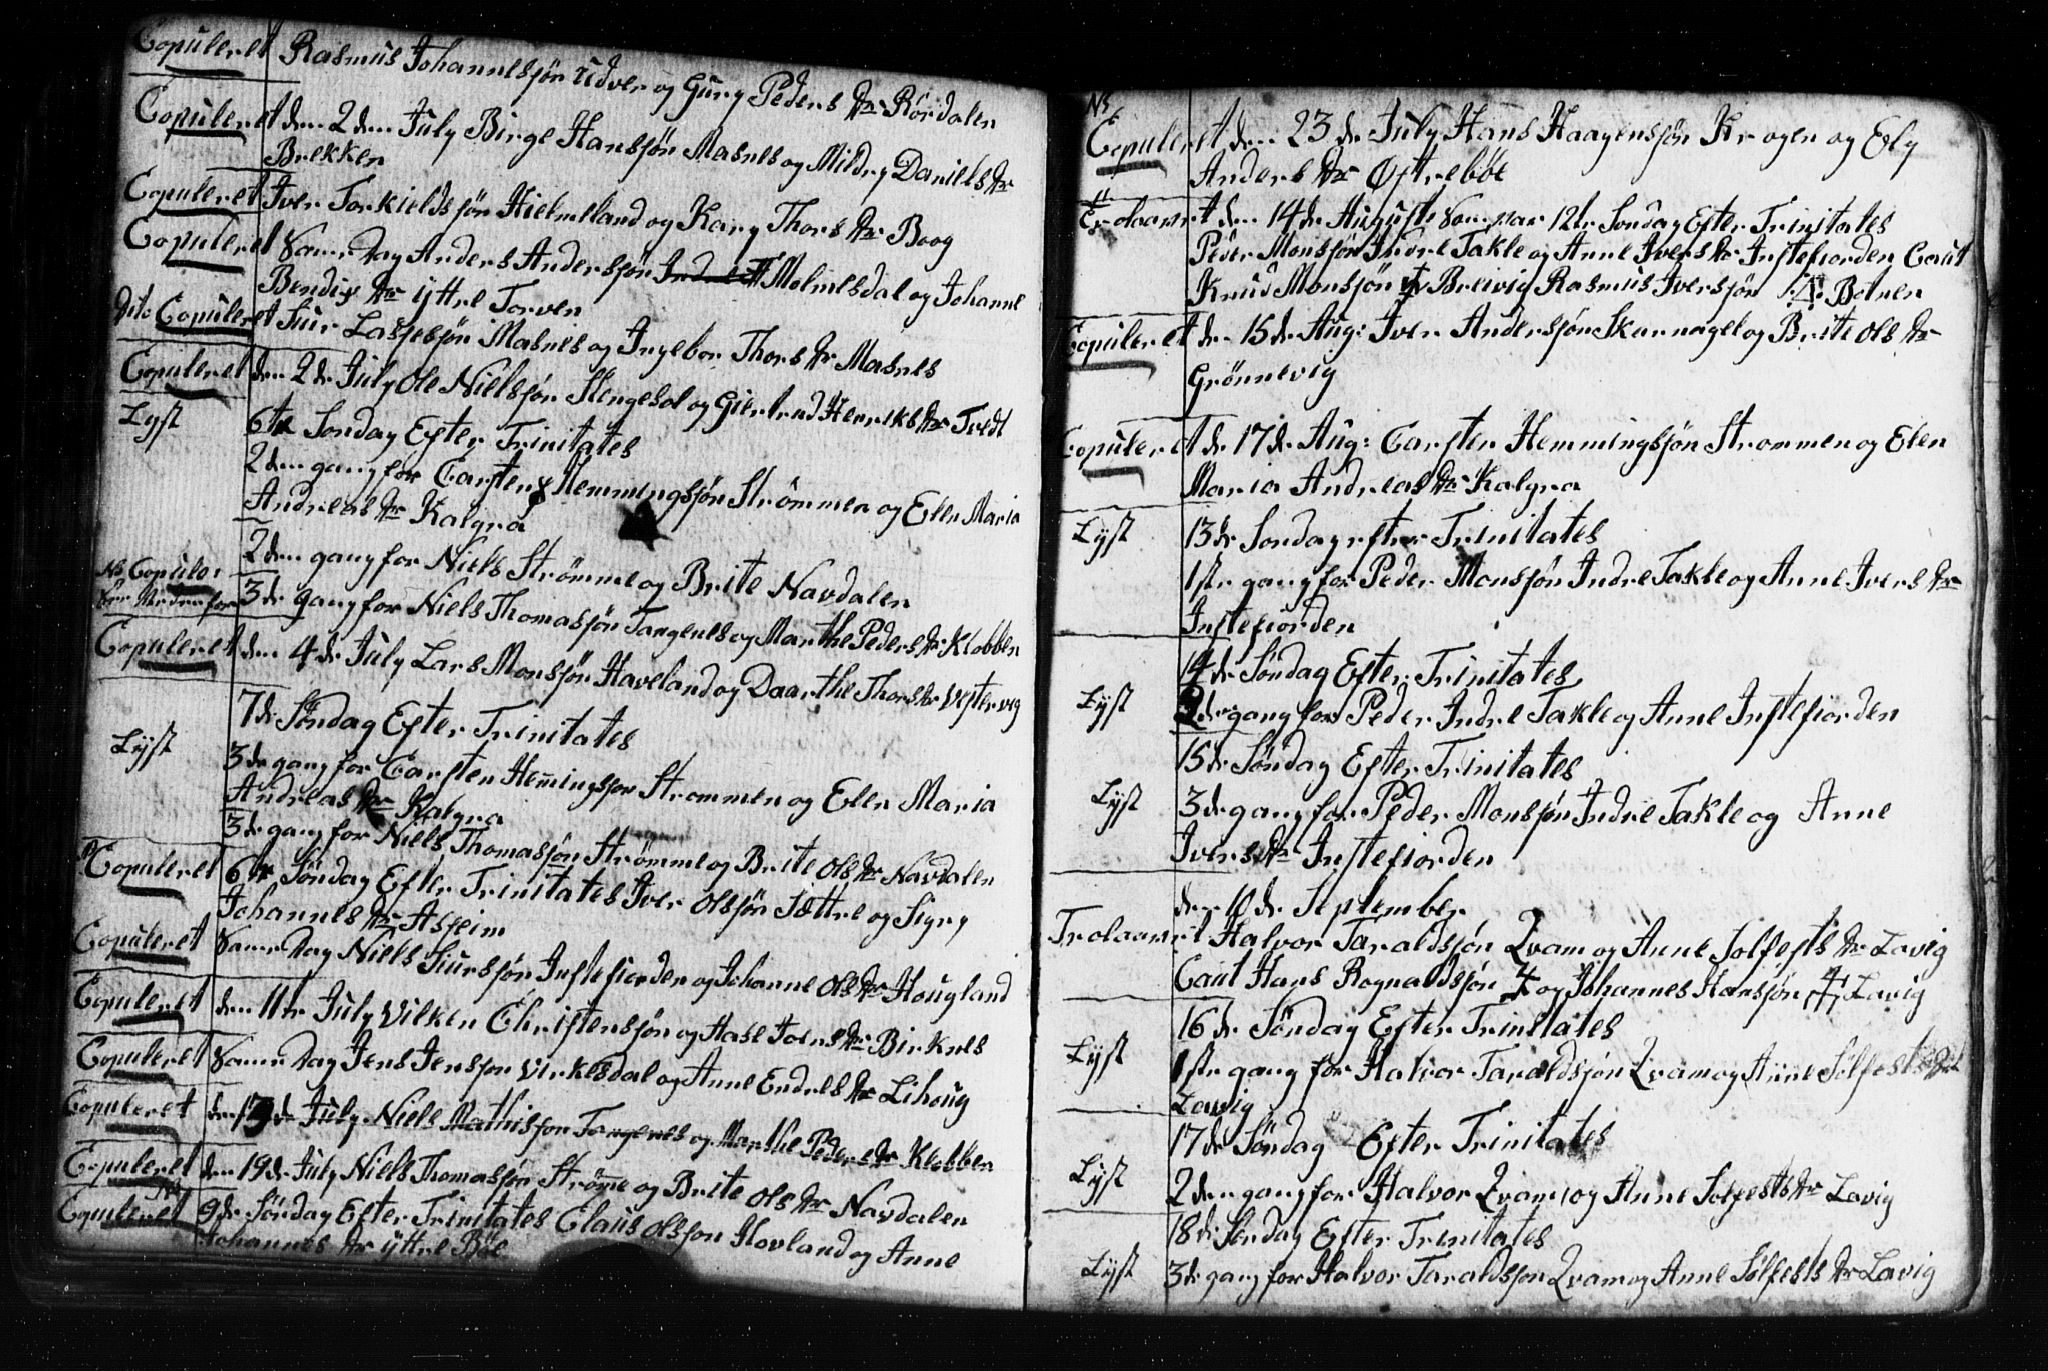 Copuleret Rasmus Johannessøn Udver og Gury Peders Dtr Rørdalen
Copuleret den 2den July Birge Hansøn Masnes og Mildry Daniels Dtr
Brekken
Copuleret Iver Torkieldsøn Hielmeland og Kary Thors Dtr Boog
Copuleret Samme Dag Anders Andersøn Molmesdal og Johanne
Bendix Dtr Yttre Torven
dito Copuleret Siur Lassesøn Masnes og Ingebor Thors Dtr Masnes
Copuleret den 2de July Ole Nielsøn Stengesol og Giertrud Henriks Dtr Tvedt
Lyst 6te Søndag Efter Trinitates
2den gang for Carsten Hemmingsøn Strømmen og Elen Maria
Andreas Dtr Kalgra
2den gang for Niels Strømme og Brite Navdalen
NB Copuler: 3de gang for Niels Thomasøn Tangenes og Marthe Peders Dtr Klobben
See Neden for
Copuleret den 4de July Lars Monsøn Haveland og Daarthe Thors Dtr Vestervig
7de Søndag Efter Trinitates
Lyst 3de gang for Carsten Hem̄ingsøn Strømmen og Elen Maria
Andreas Dtr Kalgra
3de gang for Niels Thomasøn Strømme og Brite Ols Dtr Navdalen
Copuleret 6te Søndag Efter Trinitates Iver Olsøn Sættre og Sigry
Johannes Dtr Asheim
Copuleret Samme Dag Niels Siursøn Instefiorden og Johanne Ols Dtr Hougland
Copuleret den 11te July Vilken Christensøn og Hase Joens Dtr Birknes
Copuleret Samme Dag Jens Jensøn Virkesdal og Anne Endres Dtr Lihoug
Copuleret den 13de July Niels Mathisøn Tangenes og Marthe Peders Dtr Klobben
Copuleret den 19de July Niels Thomasøn Strøm̄e og Brite Ols Dtr Navdalen
Copuleret 9de Søndag Efter Trinitates Claus Olsøn Hovland og Anne
Johannes Dtr Yttre Bøe
NB
Copuleret den 23de July Hans Haagensøn Krogen og Ely
Anders Dtr Østrebøe
Trolaavet den 14de Auguste Som var 12te Søndag Efter Trinitates
Peder Monsøn Indre Takle og Anne Ivers Dtr Instefiorden Caut
Knud Monsøn Breivig Rasmus Iversøn Botnen
Copuleret den 15de Aug: Iver Andersøn Skarnagel og Brite Ols Dtr
Grønnevig
Copuleret de 17de Aug: Carsten Hemmingsøn Strømmen og Elen
Maria Andreas Dtr Kalgra
Lyst 13de Søndag efter Trinitates
1ste gang for Peder Monsøn Indre Takle og Anne Ivers Dtr
Instefiorden
14de Søndag Efter Trinitates
Lyst 2de gang for Peder Indre Takle og Anne Instefiorden
15de Søndag Efter Trinitates
Lyst 3de gang for Peder Monsøn Indre Takle og Anne
Ivers Dtr Instefiorden
den 10de September
Trolaavet Halvor Taraldsøn Qvam og Anne Solfests Dtr Lavig
Caut Hans Rognaldsøn og Johannes Hansøn Lavig
16de Søndag Efter Trinitates
Lyst 1ste gang for Halvor Taraldsøn Qvam og Anne Sølfests Dtr
Lavig
17de Søndag Efter Trinitates
Lyst 2den gang for Halvor Qvam og Anne Solfests Dtr Lavig
18de Søndag Efter Trinitates
Lyst 3de gang for Halvor Taraldsøn Qvam og Anne Sølfests Dtr Lavig